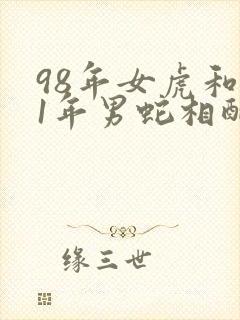 98年女虎和
1年男蛇相配
缘三世